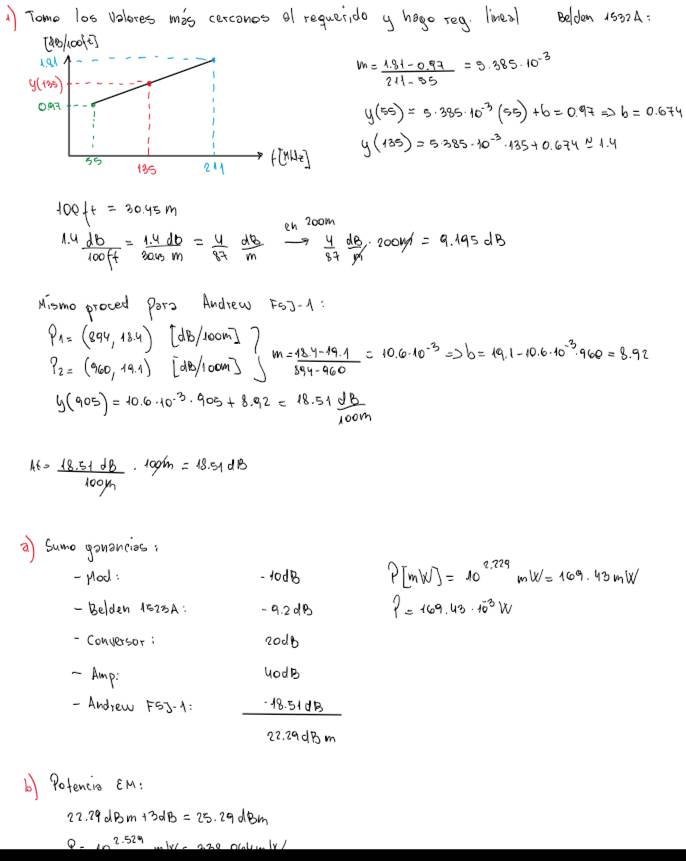 1) Tomo los valores más cercanos al requerido y hago reg. lineal Belden 1532A:
[dB/100ft]
1.81
y(135)
0.97
55
135
211
f[MHz]
m = 1.81 - 0.97 / 211 - 55 = 5.385·10^-3
y(55) = 5.385·10^-3 (55) + b = 0.97 => b = 0.674
y(135) = 5.385·10^-3·135 + 0.674 ≈ 1.4
100ft = 30.45 m
1.4 dB/100ft = 1.4 dB/30.45 m = 4/87 dB/m → en 200m 4/87 dB/m · 200m = 9.195 dB
Mismo proced para Andrew FSJ-1:
P1 = (894, 18.4) [dB/100m]
P2 = (960, 19.1) [dB/100m]
m = 18.4 - 19.1 / 894 - 960 = 10.6·10^-3 => b = 19.1 - 10.6·10^-3·960 = 8.92
y(905) = 10.6·10^-3·905 + 8.92 = 18.51 dB/100m
At = 18.51 dB/100m · 100m = 18.51 dB
a) Sumo ganancias:
- Mod: -10dB
- Belden 1523A: -9.2dB
- Conversor: 20dB
- Amp: 40dB
- Andrew FSJ-1: -18.51dB
22.29dBm
P[mW] = 10^2.229 mW = 169.43mW
P = 169.43·10^-3 W
b) Potencia EM:
22.29dBm + 3dB = 25.29dBm